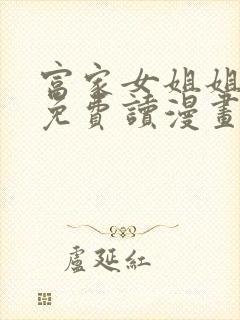 富家女姐姐
免費讀漫畫
盧延紅